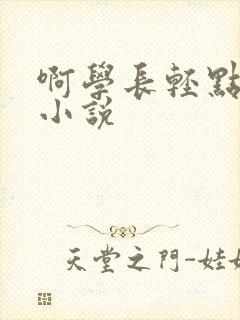 啊學長輕點
小說
天堂之門-娃